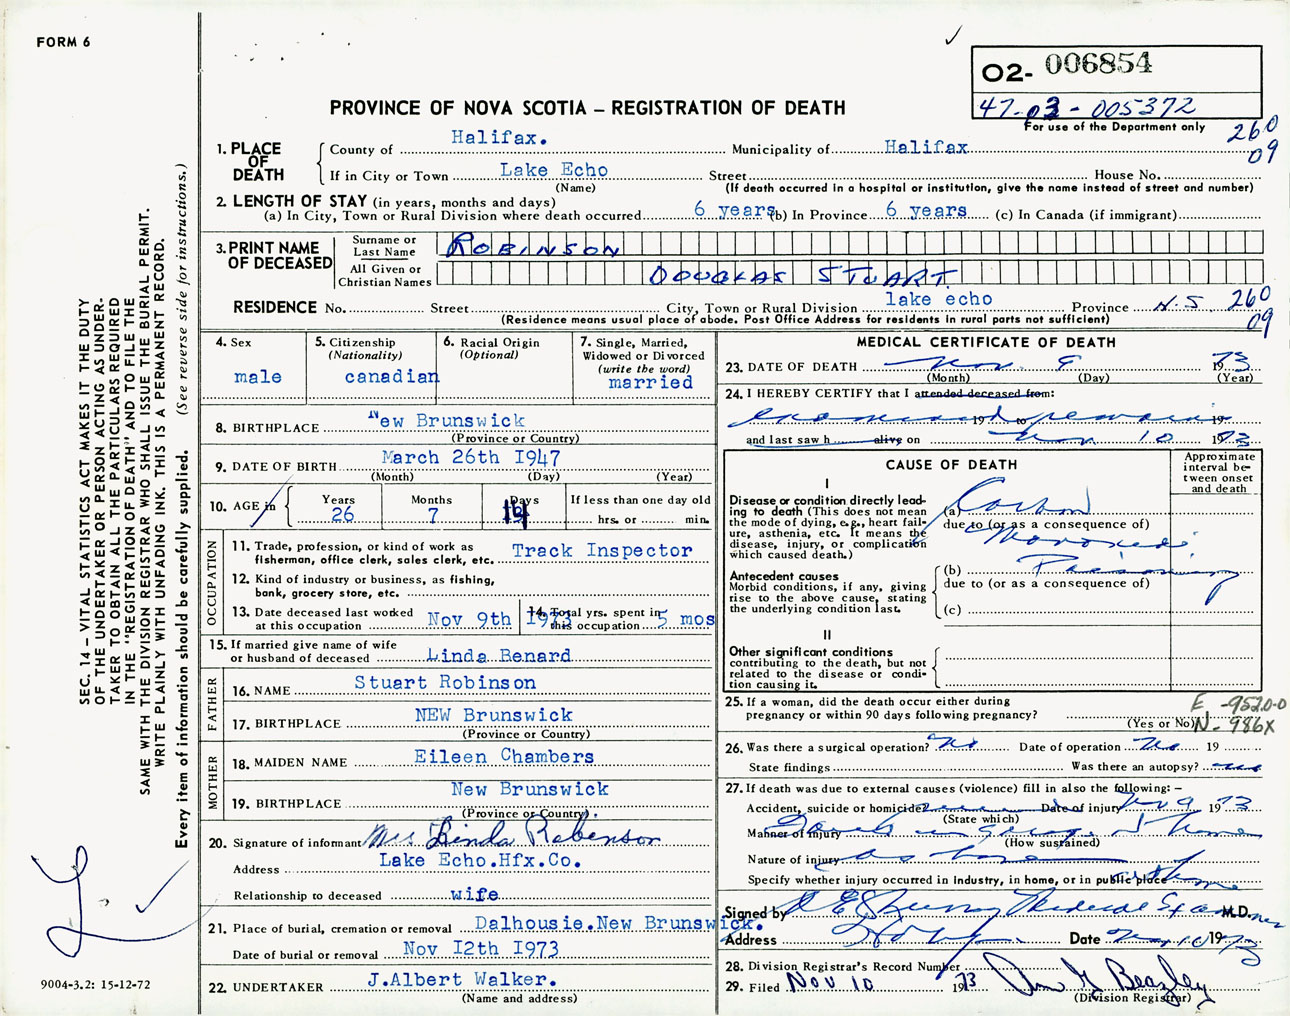 FORM 6
O2- 006854
47-03-005372
For use of the Department only
260
09
PROVINCE OF NOVA SCOTIA – REGISTRATION OF DEATH
1. PLACE OF DEATH
County of Halifax. Municipality of Halifax
If in City or Town Lake Echo Street House No.
(Name) (If death occurred in a hospital or institution, give the name instead of street and number)
2. LENGTH OF STAY (in years, months and days)
(a) In City, Town or Rural Division where death occurred 6 years (b) In Province 6 years (c) In Canada (if immigrant)
3. PRINT NAME OF DECEASED
Surname or Last Name ROBINSON
All Given or Christian Names DOUGLAS STUART.
RESIDENCE No. Street City, Town or Rural Division lake echo Province N.S. 260
(Residence means usual place of abode. Post Office Address for residents in rural parts not sufficient) 09
4. Sex male
5. Citizenship (Nationality) canadian
6. Racial Origin (Optional)
7. Single, Married, Widowed or Divorced (write the word) married
8. BIRTHPLACE New Brunswick
(Province or Country)
9. DATE OF BIRTH March 26th I947
(Month) (Day) (Year)
10. AGE in Years 26 Months 7 Days 14 If less than one day old hrs. or min.
OCCUPATION
11. Trade, profession, or kind of work as fisherman, office clerk, sales clerk, etc. Track Inspector
12. Kind of industry or business, as fishing, bank, grocery store, etc.
13. Date deceased last worked at this occupation Nov 9th I973
14. Total yrs. spent in this occupation 5 mos
15. If married give name of wife or husband of deceased Linda Benard
FATHER
16. NAME Stuart Robinson
17. BIRTHPLACE NEW Brunswick
(Province or Country)
MOTHER
18. MAIDEN NAME Eileen Chambers
19. BIRTHPLACE New Brunswick
(Province or Country)
20. Signature of informant Mrs Linda Robinson
Address Lake Echo.Hfx.Co.
Relationship to deceased wife
21. Place of burial, cremation or removal Dalhousie.New Brunswick.
Date of burial or removal Nov I2th I973
22. UNDERTAKER J.Albert Walker.
(Name and address)
MEDICAL CERTIFICATE OF DEATH
23. DATE OF DEATH Nov. 9 1973
(Month) (Day) (Year)
24. I HEREBY CERTIFY that I attended deceased from:
examined 19 to remains 19
and last saw h alive on Nov 10 1973
CAUSE OF DEATH
Approximate interval between onset and death
I
Disease or condition directly leading to death (This does not mean the mode of dying, e.g., heart failure, asthenia, etc. It means the disease, injury, or complication which caused death.)
(a) Carbon
due to (or as a consequence of)
Monoxide
Antecedent causes
Morbid conditions, if any, giving rise to the above cause, stating the underlying condition last.
(b) Poisoning
due to (or as a consequence of)
(c)
II
Other significant conditions contributing to the death, but not related to the disease or condition causing it.
25. If a woman, did the death occur either during pregnancy or within 90 days following pregnancy?
(Yes or No)
E -952.0-0
N- 986X
26. Was there a surgical operation? No Date of operation No 19
State findings Was there an autopsy? no
27. If death was due to external causes (violence) fill in also the following: –
Accident, suicide or homicide? Date of injury Nov 9 1973
(State which)
Manner of injury
(How sustained)
Nature of injury
Specify whether injury occurred in Industry, in home, or in public place
Signed by Medical Examiner M.D.
Address Date Nov 10 1973
28. Division Registrar's Record Number
29. Filed Nov 10 1973
(Division Registrar)
SEC. 14 – VITAL STATISTICS ACT MAKES IT THE DUTY
OF THE UNDERTAKER OR PERSON ACTING AS UNDER-
TAKER TO OBTAIN ALL THE PARTICULARS REQUIRED
IN THE "REGISTRATION OF DEATH" AND TO FILE THE
SAME WITH THE DIVISION REGISTRAR WHO SHALL ISSUE THE BURIAL PERMIT.
WRITE PLAINLY WITH UNFADING INK. THIS IS A PERMANENT RECORD.
Every item of information should be carefully supplied. (See reverse side for instructions.)
9004-3.2: 15-12-72